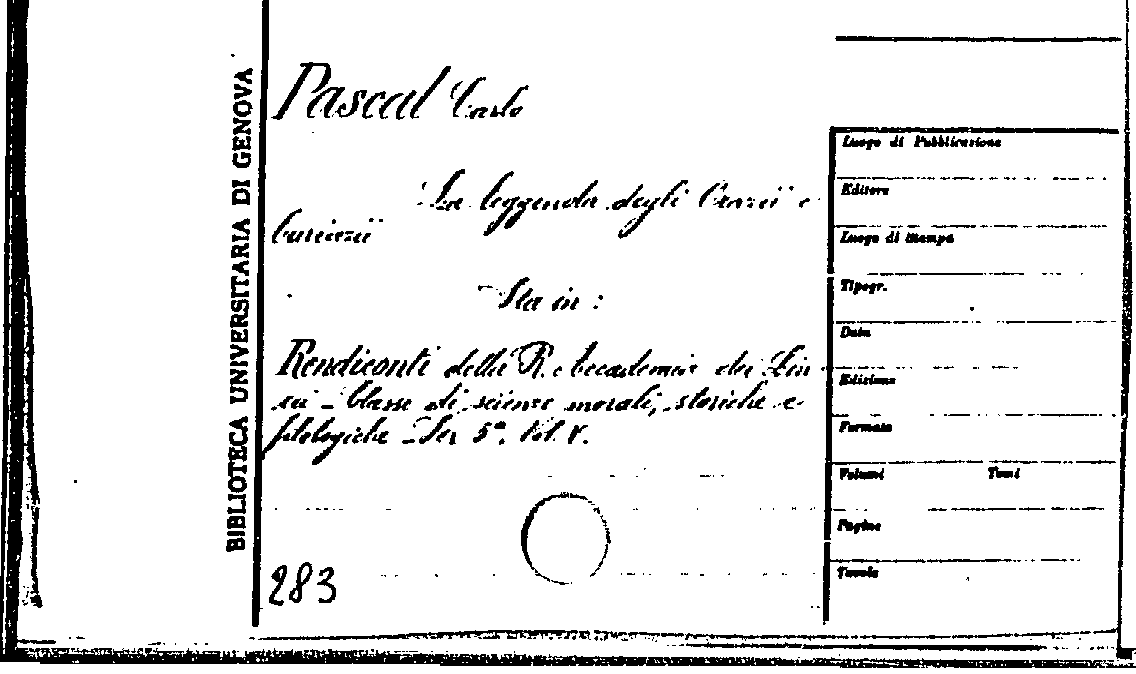 BIBLIOTECA UNIVERSITARIA DI GENOVA
Pascal Carlo
La leggenda degli Orazii e
Curiazii
Sta in :
Rendiconti della R. Accademia dei Lin
cei - Classe di scienze morali, storiche e
filologiche - Ser 5ª. Vol. V.
283
Luogo di Pubblicazione
Editore
Luogo di stampa
Tipogr.
Data
Edizione
Formato
Volumi Tomi
Pagine
Tavole